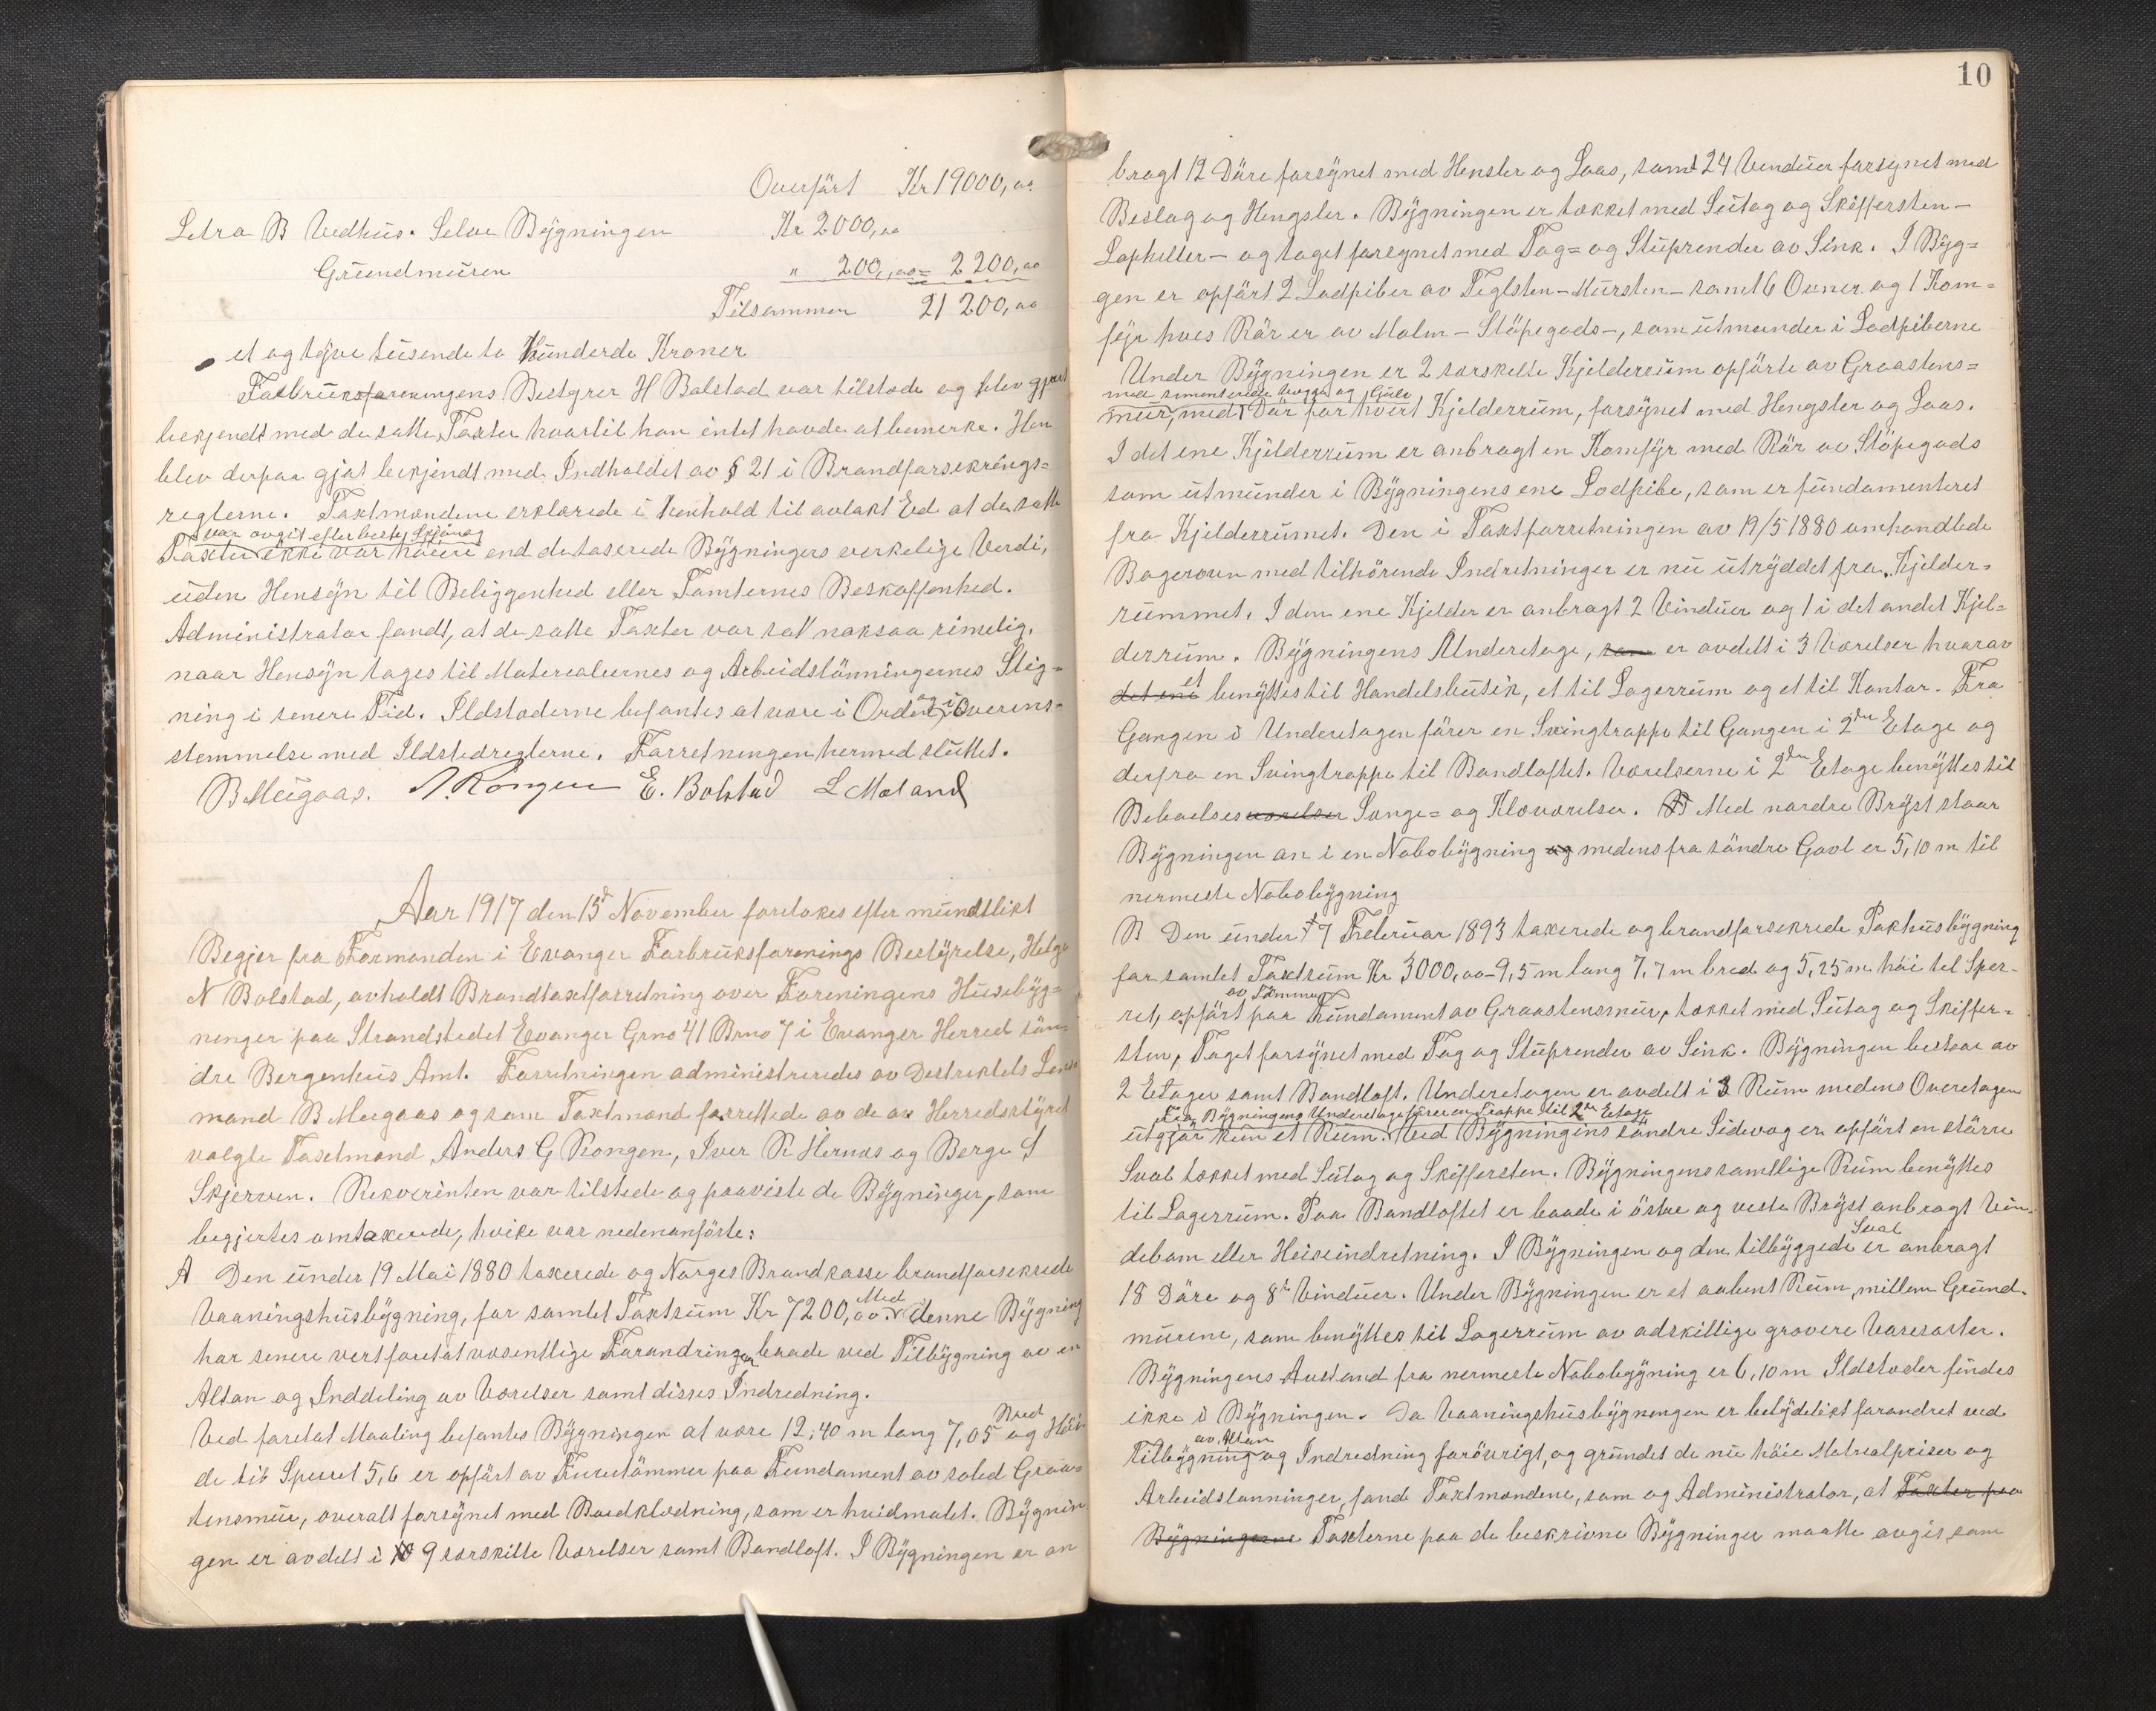 Overført Kr 19000,00
Letra B Vedhus. Selve Bygningen Kr 2000,00
Grundmuren " 200,00 = 2200,00
Tilsammen 21 200,00
et og tyve tusende to Hunderde Kroner
Forbruksforeningens Bestyrer H Bolstad var tilstede og blev gjort
bekjendt med de satte Taxter hvortil han intet havde at bemerke. Han
blev derpaa gjort bekjendt med Indholdet av § 21 i Brandforsekrings-
reglerne. Taxtmændene erklærede i Henhold til avlakt Ed at de satte
var avgit efter beste Skjøn og
Taxter ikke var høiere end de taxerede Bygningers verkelige Verdi,
uden Hensyn til Beliggenhed eller Tomternes Beskaffenhed.
Administrator fandt, at de satte Taxter var sat noksaa rimelig,
naar Hensyn tages til Materealernes og Arbeidslønningernes Stig-
ning i senere Tid. Ildstederne befantes at være i Orden og i Overens-
stemmelse med Ildstedreglerne. Forretningen hermed sluttet.
B Meugaas. A. Rongen E. Bolstad L Mæland
Aar 1917 den 15d November foretokes efter mundtlikt
Begjær fra Formanden i Evanger Forbruksforenings Bestyrelse, Helge
N Bolstad, avholdt Brandtaxtforretning over Foreningens Husebyg-
ninger paa Strandstedet Evanger Grno 41 Brno 7 i Evanger Herred søn-
dre Bergenhus Amt. Forretningen administreredes av Destriktets Lens-
mand B Meugaas og som Taxtmænd forrettede av de av Herredsstyret
valgte Taxtmænd Anders G Rongen, Iver K Hernes og Berge S
Skjerven. Rekverinten var tilstede og paaviste de Bygninger, som
begjertes omtaxerede, hvike var nedenanførte:
A Den under 19 Mai 1880 taxerede og Norges Brandkasse brandforsekrede
Vaaningshusbygning, for samlet Taxtsum Kr 7200,00. Med denne Bygning
har senere vert foretat væsentlige Forandringer baade ved Tilbygning av en
Altan og Inddeling av Værelser samt disses Indredning.
Ved foretat Maaling befantes Bygningen at være 12,40 m lang 7,05 Bred og Høi-
de til Sperret 5,6 er opført av Furutømmer paa Fundament av soled Graas-
tensmur, overalt forsynet med Bordklædning, som er hvidmalet. Bygnin-
gen er avdelt i 9 særskilte Værelser samt Bandloft. I Bygningen er an
10
bragt 12 Døre forsynet med Hensler og Laas, samt 24 Venduer forsynet med
Beslag og Hengsler. Bygningen er tækket med Sutag og Skiffersten-
Lapheller- og taget forsynet med Tag= og Stuprender av Sink. I Byg=
gen er opført 2 Lodpiber av Teglsten-Mursten- samt 6 Ovner og 1 Kom=
fyr hves Rør er av Malm-Støpegods-, som utmunder i Lodpiberne
Under Bygningen er 2 særskelte Kjelderrum opførte av Graastens=
med sementerede Vegge og Gulv
mur, med 1 Dør for hvert Kjelderrum, forsynet med Hengsler og Laas.
I det ene Kjelderrum er anbragt en Komfyr med Rør av Støpegods
som utmunder i Bygningens ene Lodpibe, som er fundamenteret
fra Kjelderrumet. Den i Taxtforretningen av 19/5 1880 omhandlede
Bagerovn med tilhørende Indretninger er nu utryddet fra Kjelder-
rummet. I den ene Kjelder er anbragt 2 Vinduer og 1 i det andet Kjel-
derrum. Bygningens Underetage, som er avdelt i 3 Værelser hvorav
det ene et benyttes til Handelsbutik, et til Lagerrum og et til Kontor. Fra
Gangen i Underetagen fører en Svingtrappe til Gangen i 2den Etage og
derfra en Svingtrappe til Bandloftet. Værelserne i 2den Etage benyttes til
Beboelsesværelser Senge= og Kleværelser. Med nordre Bryst staar
Bygningen an i en Nabobygning og medens fra søndre Gavl er 5,10 m til
nermeste Nabobygning
B Den under 7 Februar 1893 taxerede og brandforsekrede Pakhusbygning
for samlet Taxtsum Kr 3000,00 - 9,5 m lang 7,7 m bred og 5,25 m høi tel Sper-
av Tømmer
ret, opført paa Fundament av Graastensmur, tækket med Sutag og Skiffer-
sten, Taget forsynet med Tag og Stuprender av Sink. Bygningen bestaar av
2 Etager samt Bandloft. Underetagen er avdelt i 3 Rum medens Overetagen
Fra Bygningens Underetage fører en Trappe til 2den Etage
utgjør kun et Rum. Ved Bygningens søndre Sidevæg er opført en større
Sval tækket med Sutag og Skiffersten. Bygningens samtlige Rum benyttes
til Lagerrum. Paa Bandloftet er baade i østre og vestre Bryst anbragt Vin-
debom eller Heiseindretning. I Bygningen og den tilbyggede Sval er anbragt
18 Døre og 8 Vinduer. Under Bygningen er et aabent Rum, millem Grund-
murene, som benyttes til Lagerrum av adskillige grovere Varesorter.
Bygningens Avstand fra nermeste Nabobygning er 6,10 m Ildsteder findes
ikke i Bygningen. Da Vaaningshusbygningen er betydelikt forandret ved
av Altan
Tilbygning og Indredning forøvrigt, og grundet de nu høie Matrealpriser og
Arbeidslønninger, fandt Taxtmændene, som og Administrator, at Taxter paa
Bygningerne Taxterne paa de beskrivne Bygninger maatte avgis som